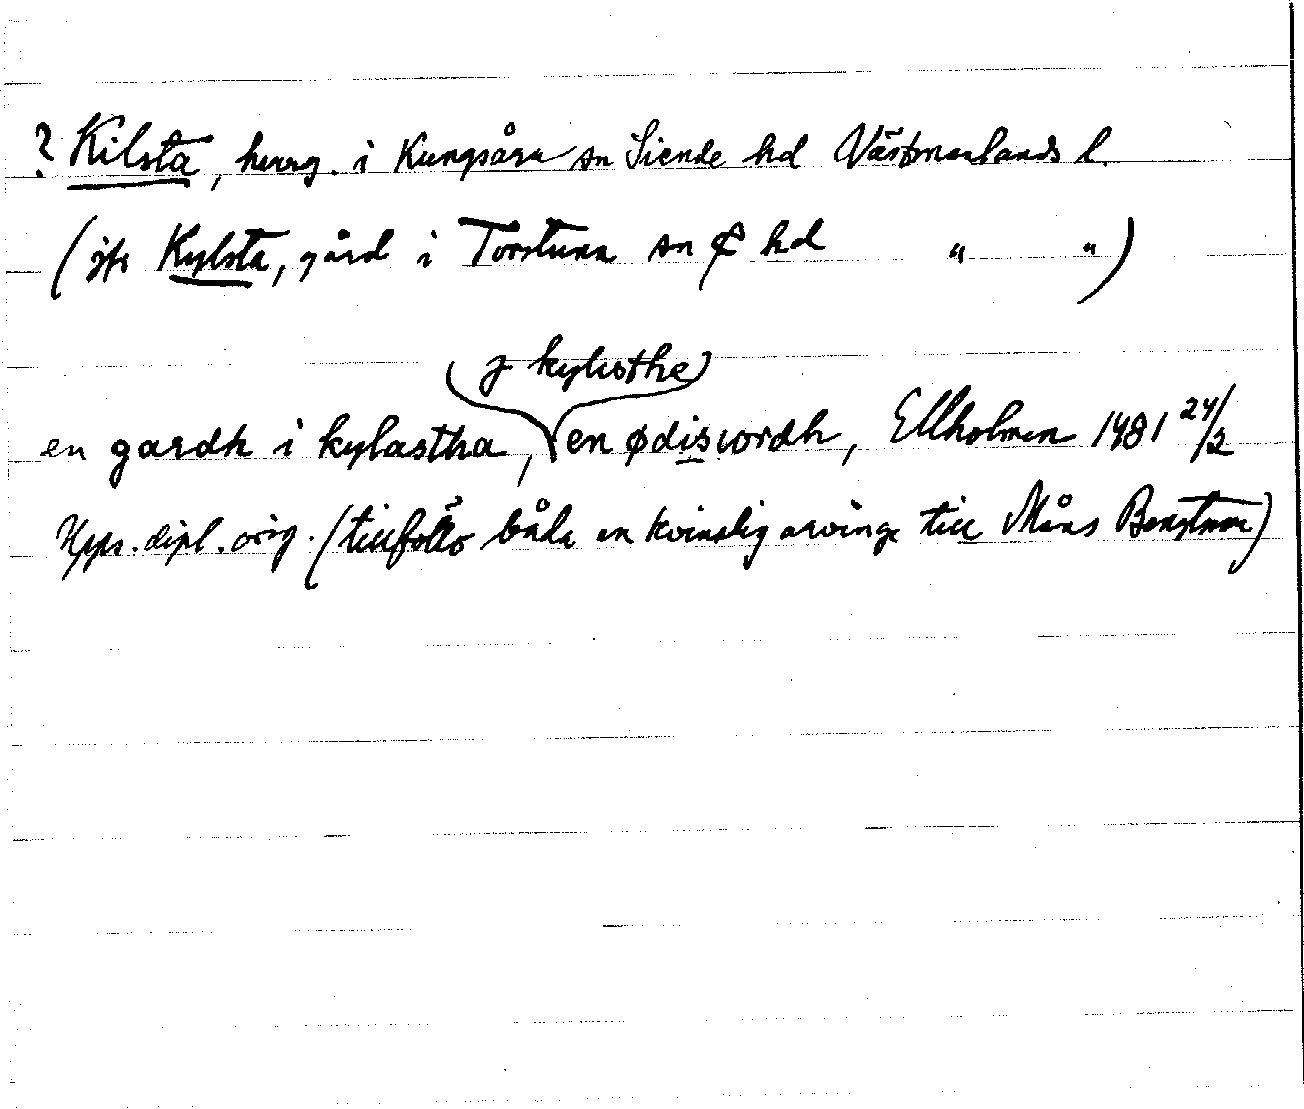 ? Kilsta, herrg. i Kungsåra sn Siende hd Västmanlands l.
(jfr Kylsta, gård i Torstuna sn hd " ")
j kylusthe
en gardh i kylastha, en ødiswordh, Ellholmen 1481 24/2
Upps. dipl. orig. (tillföllo båda en kvinnlig arvinge till Måns Bengtsson)